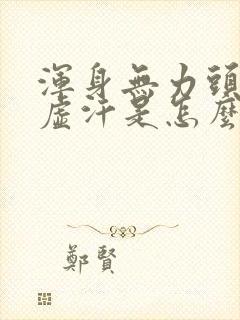 渾身無力頭
虛汗是怎麼
鄭賢